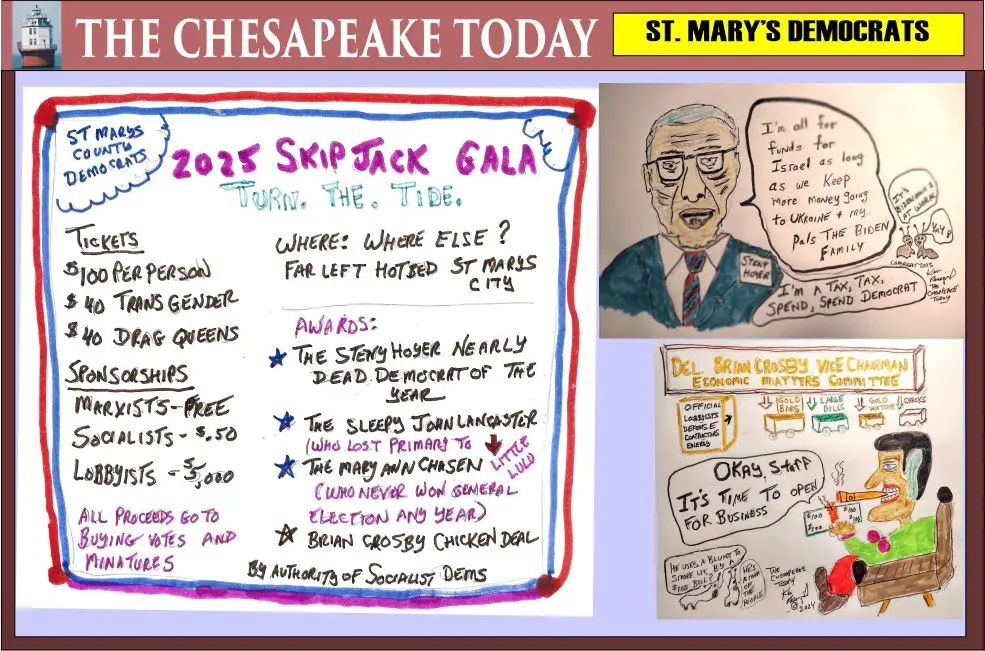 THE CHESAPEAKE TODAY
ST. MARY'S DEMOCRATS
ST MARYS
COUNTY
DEMOCRATS
2025 SKIPJACK GALA
TURN. THE. TIDE.
TICKETS
$100 PER PERSON
$40 TRANS GENDER
$40 DRAG QUEENS
SPONSORSHIPS
MARXISTS - FREE
SOCIALISTS - $.50
LOBBYISTS - $5,000
ALL PROCEEDS GO TO
BUYING VOTES AND
MINATURES
WHERE: WHERE ELSE?
FAR LEFT HOTBED ST MARYS
CITY
AWARDS:
THE STENY HOYER NEARLY
DEAD DEMOCRAT OF THE
YEAR
THE SLEEPY JOHN LANCASTER
(WHO LOST PRIMARY TO
LITTLE
LULU
THE MARY ANN CHASEN
(WHO NEVER WON GENERAL
ELECTION ANY YEAR)
BRIAN CROSBY CHICKEN DEAL
BY AUTHORITY OF SOCIALIST DEMS
I'm all for
funds for
Israel as long
as we keep
more money going
to UKRAINE + my
pals THE BIDEN
FAMILY
STENY
HOYER
I'M A TAX, TAX,
SPEND, SPEND DEMOCRAT
IT'S
AT WORK
YAY!
COPYRIGHT 2023
THE CHESAPEAKE
TODAY
DEL. BRIAN CROSBY VICE CHAIRMAN
ECONOMIC MATTERS COMMITTEE
OFFICIAL
LOBBYISTS
DEFENSE
CONTRACTORS
ENERGY
GOLD
BARS
LARGE
BILLS
GOLD
CHECKS
OKAY, Staff
IT'S TIME TO OPEN
FOR BUSINESS
$100
$100
$100
HE USES A BLUNT TO
SMOKE LIT BY A
$100 BILL?
HE'S
A MAN
OF THE
PEOPLE
THE
CHESAPEAKE
TODAY
© 2024